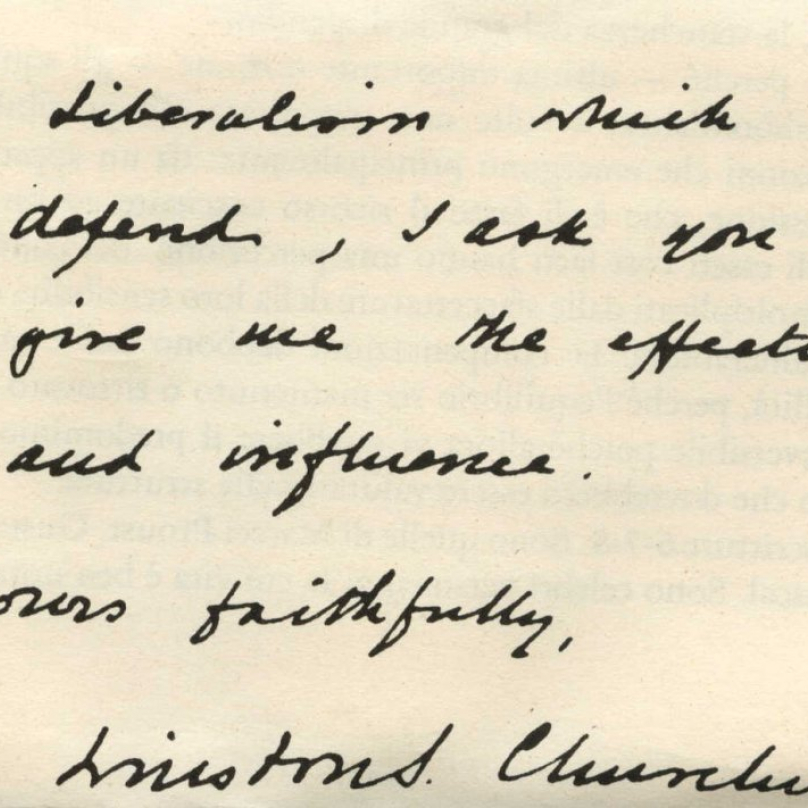 Liberalism which
defend, I ask you
give me the effects
and influence.
ours faithfully,
Winston S. Churchi